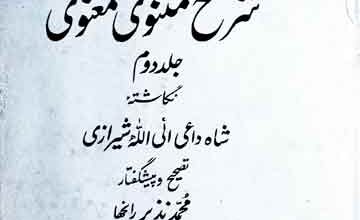 شرح مثنوی معنوی
جلد دوم
نگاشتهٔ
شاه داعی الی اللّٰه شیرازی
تصحیح و پیشگفتار
محمد نذیر رانجها